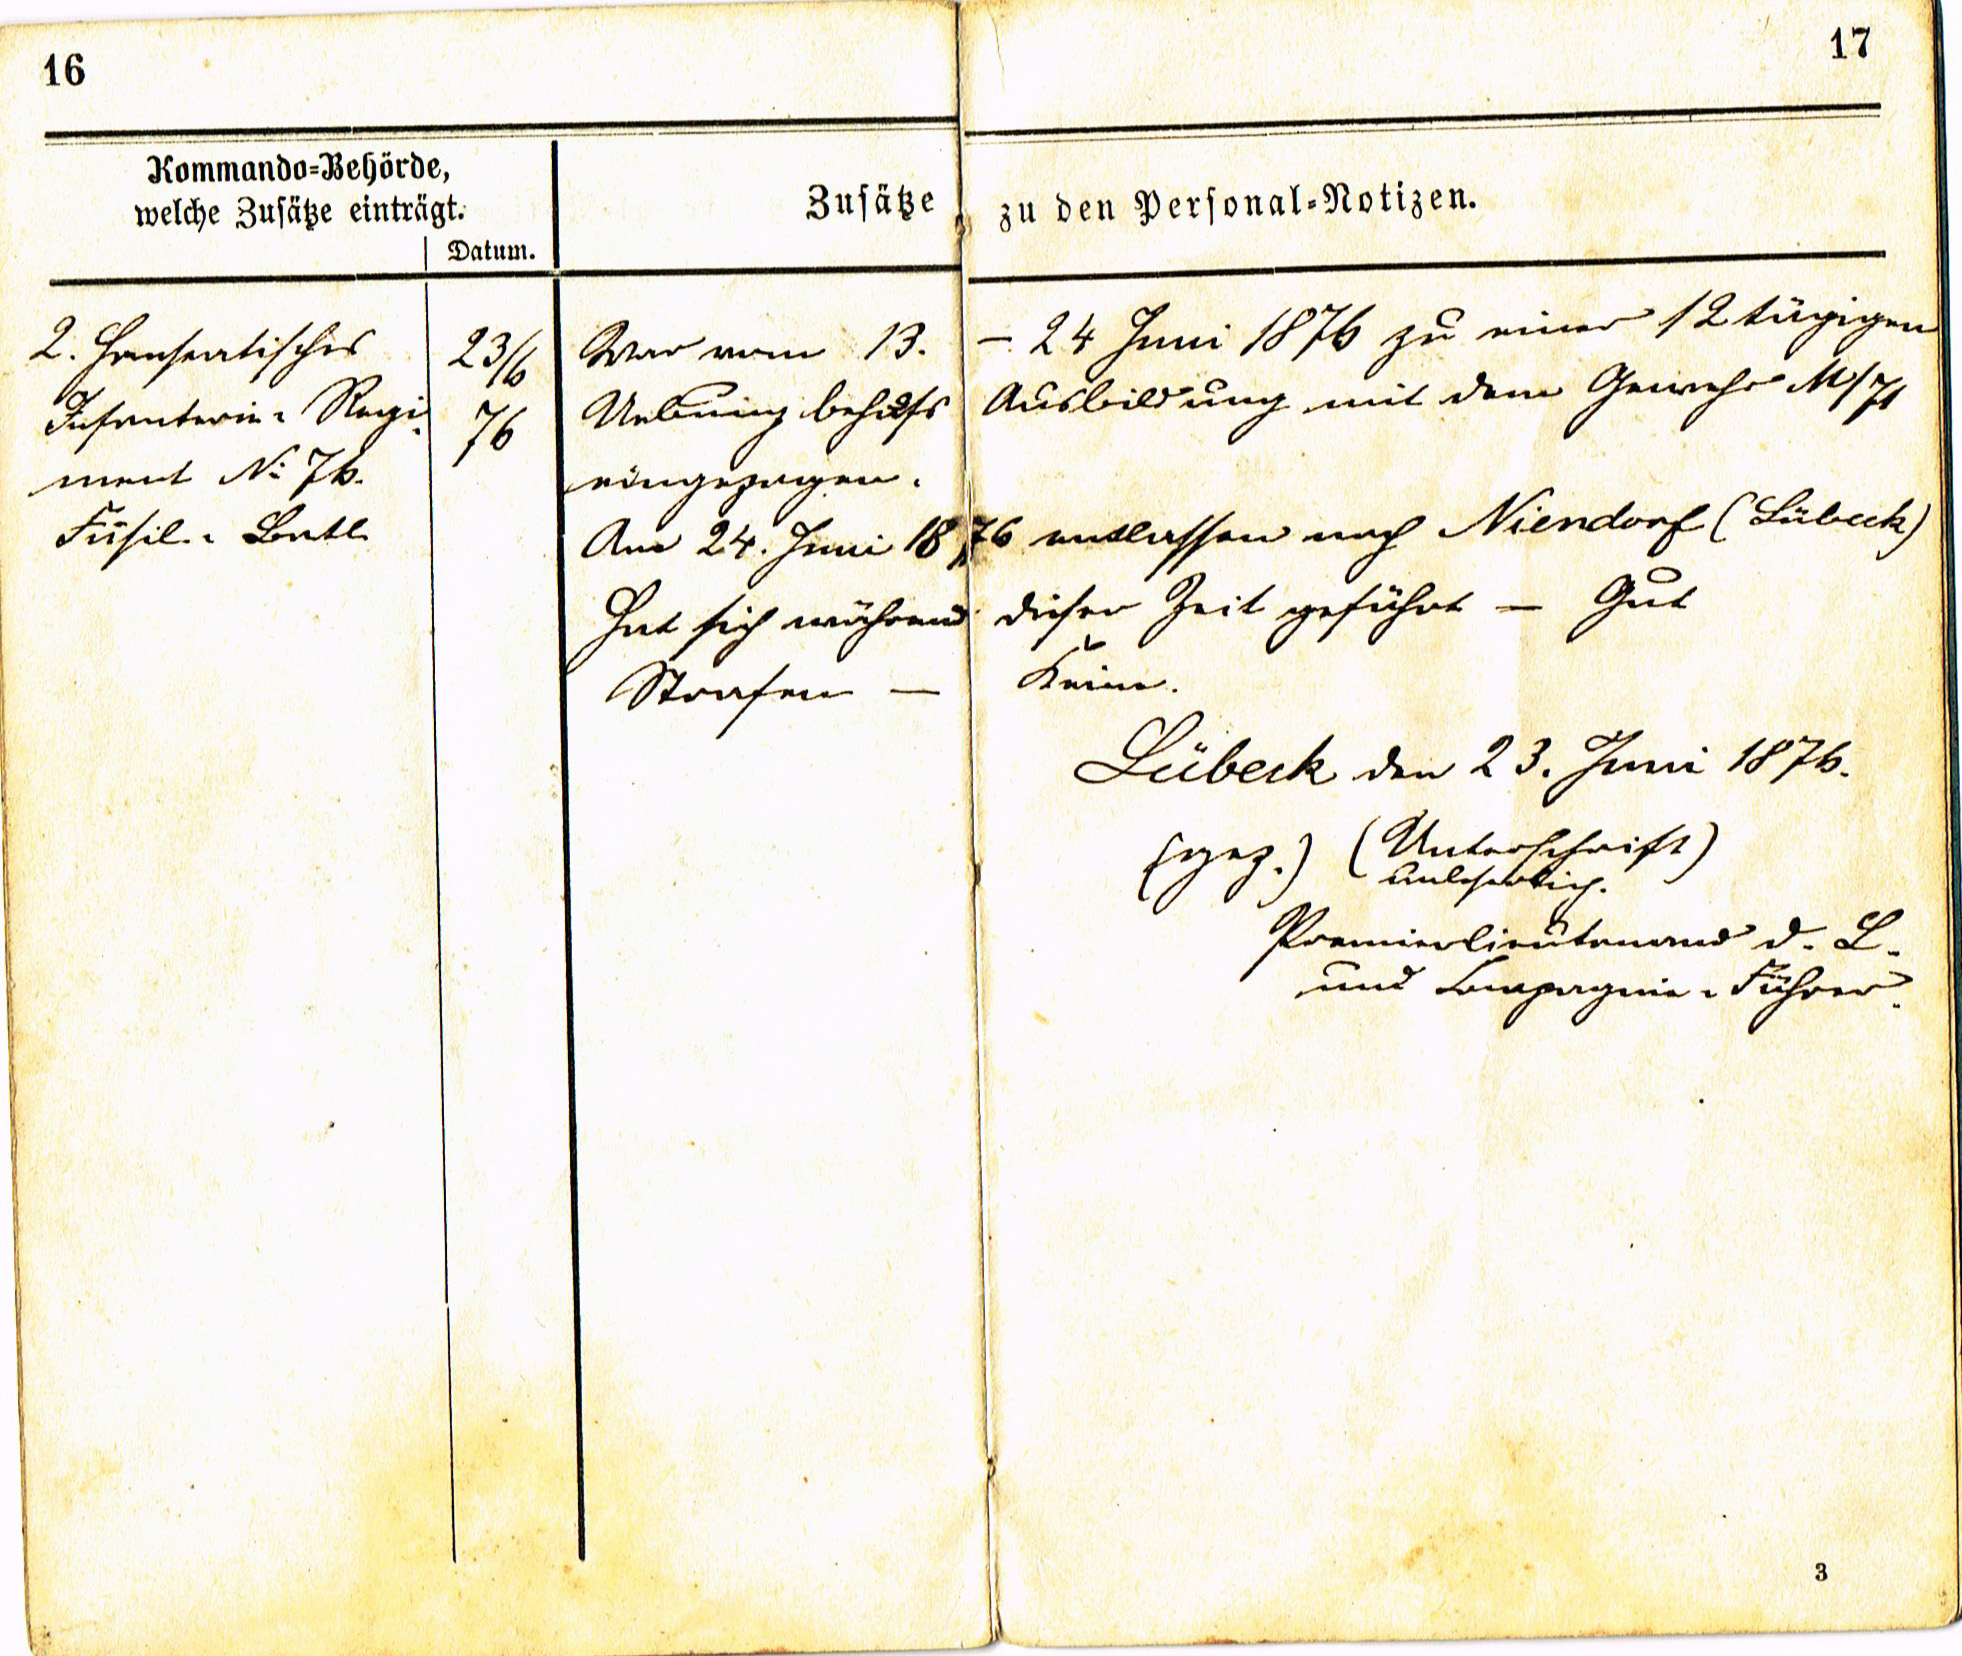 16
17
Kommando-Behörde,
welche Zusätze einträgt.
Datum.
Zusätze zu den Personal-Notizen.
2. Hanseatisches
Infanterie- Regi-
ment No 76.
Füsil.- Batl.
23/6
76
War vom 13. – 24 Juni 1876 zu einer 12 tägigen
Uebung behufs Ausbildung mit dem Gewehr M/71
eingezogen.
Am 24. Juni 1876 entlassen nach Niendorf (Lübeck)
Hat sich während dieser Zeit geführt – Gut
Strafen – Keine.
Lübeck den 23. Juni 1876.
(gez.) (Unterschrift)
unleserlich.
Premierlieutenant d. L.
und Compagnie- Führer.
3